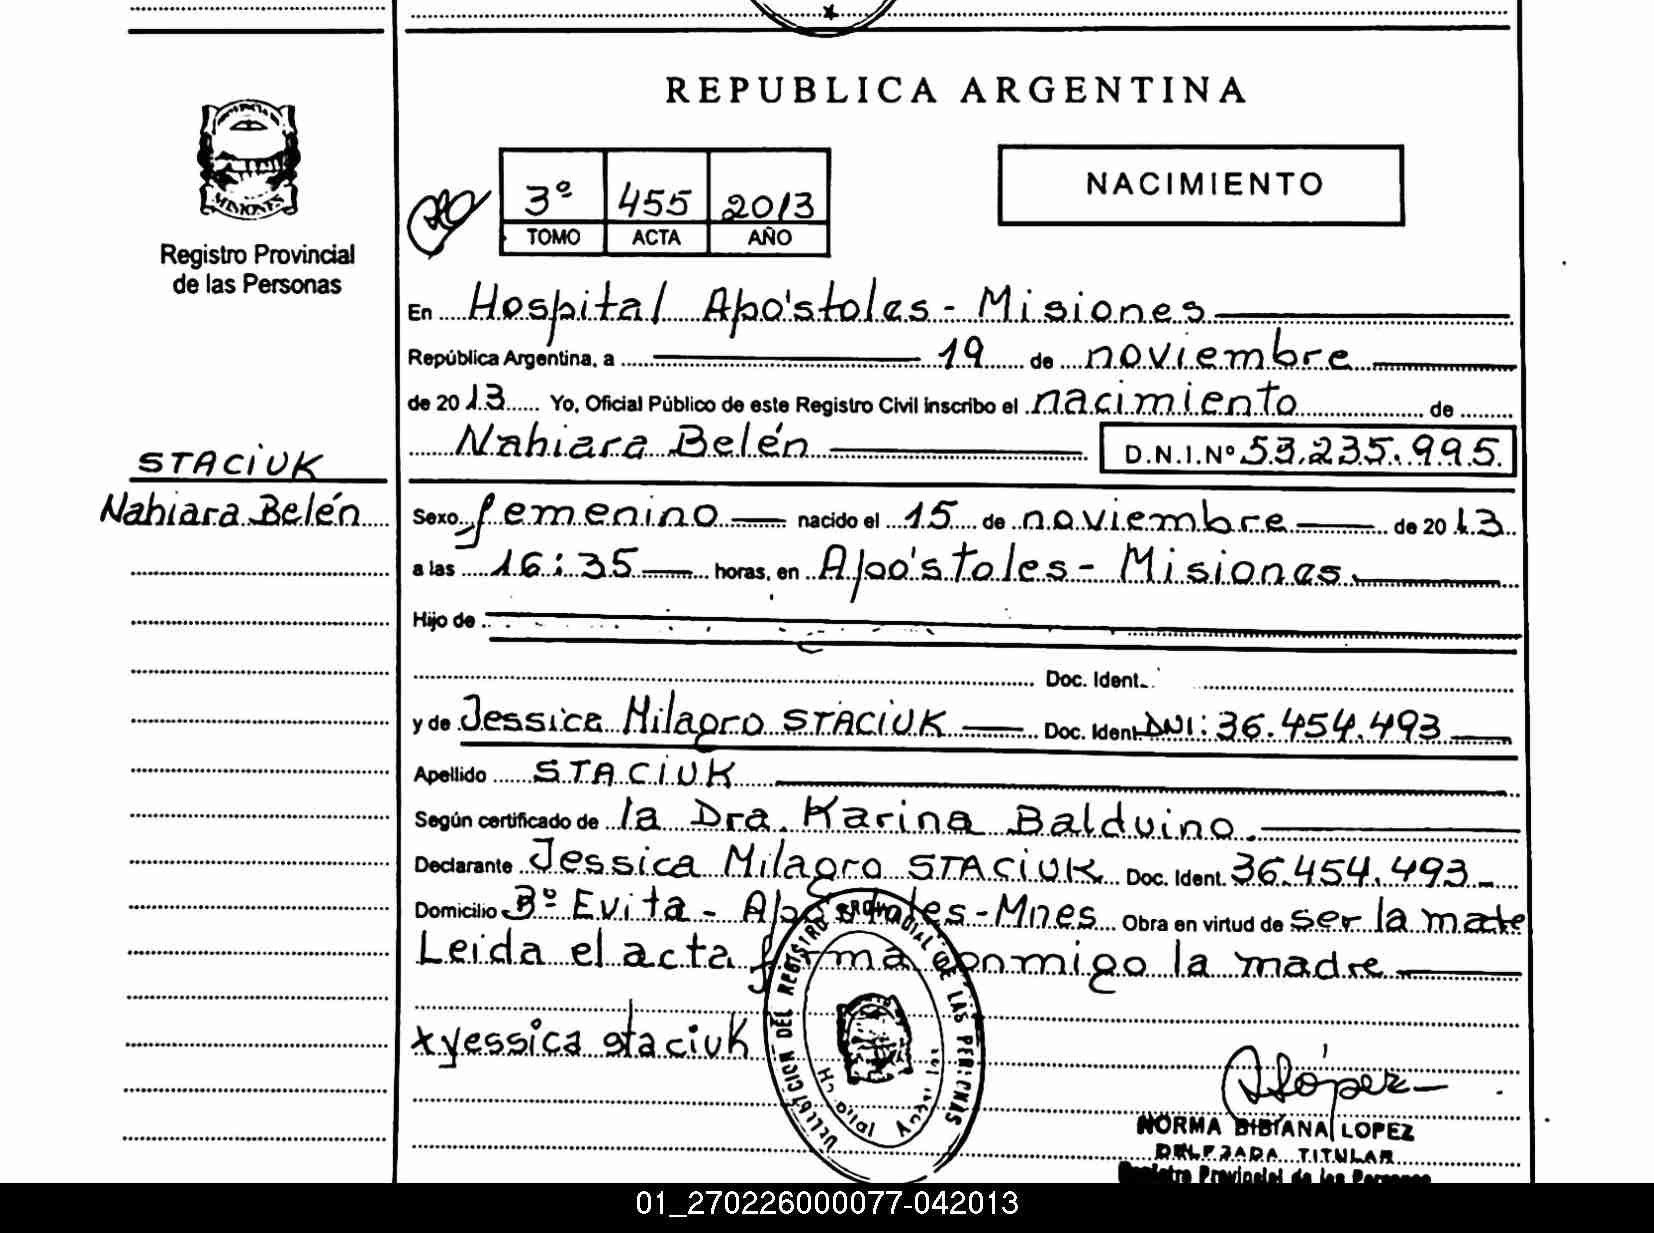 REPUBLICA ARGENTINA
MISIONES
Registro Provincial
de las Personas
3º 455 2013
TOMO ACTA AÑO
NACIMIENTO
En Hospital Apóstoles - Misiones
República Argentina, a 19 de noviembre
de 2013 Yo, Oficial Público de este Registro Civil inscribo el nacimiento de
Nahiara Belén D.N.I.Nº 53.235.995
STACIUK
Nahiara Belén
Sexo femenino nacido el 15 de noviembre de 2013
a las 16:35 horas, en Apóstoles - Misiones
Hijo de
Doc. Ident.
y de Jessica Milagro STACIUK Doc. Ident DNI: 36.454.493
Apellido STACIUK
Según certificado de la Dra. Karina Balduino.
Declarante Jessica Milagro STACIUK Doc. Ident. 36.454.493
Domicilio Bº Evita - Apóstoles - Mnes Obra en virtud de ser la madre
Leida el acta firma conmigo la madre
x yessica staciuk
DELEGACION DEL REGISTRO PROVINCIAL DE LAS PERSONAS
Hospital
López
NORMA BIBIANA LOPEZ
DELEGADA TITULAR
Registro Provincial de las Personas
01_270226000077-042013